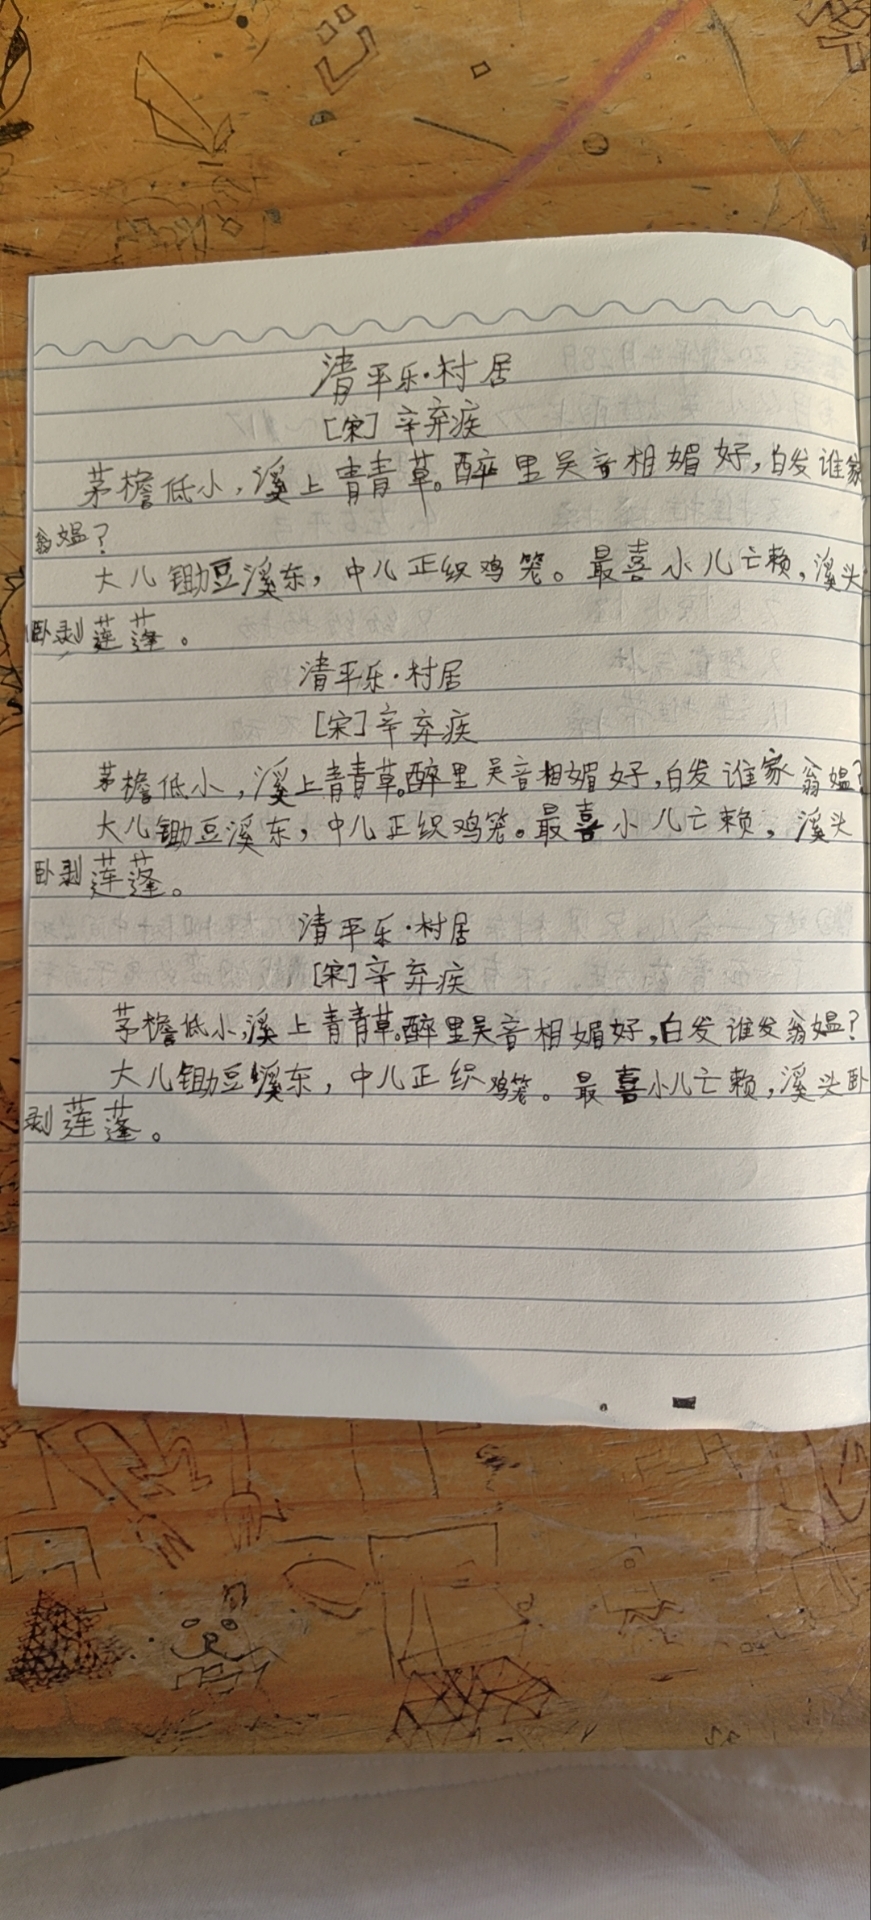 清平乐·村居
[宋]辛弃疾
茅檐低小,溪上青青草。醉里吴音相媚好,白发谁家
翁媪?
大儿锄豆溪东,中儿正织鸡笼。最喜小儿亡赖,溪头
卧剥莲蓬。
清平乐·村居
[宋]辛弃疾
茅檐低小,溪上青青草。醉里吴音相媚好,白发谁家翁媪?
大儿锄豆溪东,中儿正织鸡笼。最喜小儿亡赖,溪头
卧剥莲蓬。
清平乐·村居
[宋]辛弃疾
茅檐低小溪上青青草。醉里吴音相媚好,白发谁发翁媪?
大儿锄豆溪东,中儿正织鸡笼。最喜小儿亡赖,溪头卧
剥莲蓬。